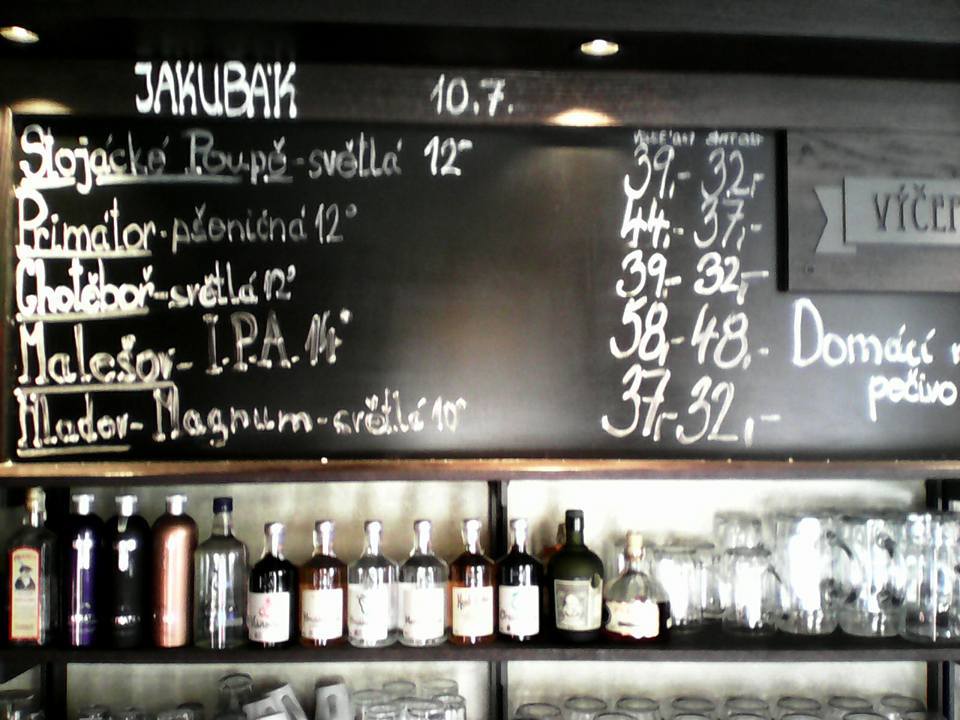 JAKUBÁK 10.7.
Slojácké Poupě - světlá 12° 39,- 32,-
Primátor - pšeničná 12° 44,- 37,-
Chotěboř - světlá 12° 39,- 32,-
Malešov - I.P.A. 14° 58,- 48,-
Mladov - Magnum - světlá 10° 37,- 32,-
Domácí
pečivo